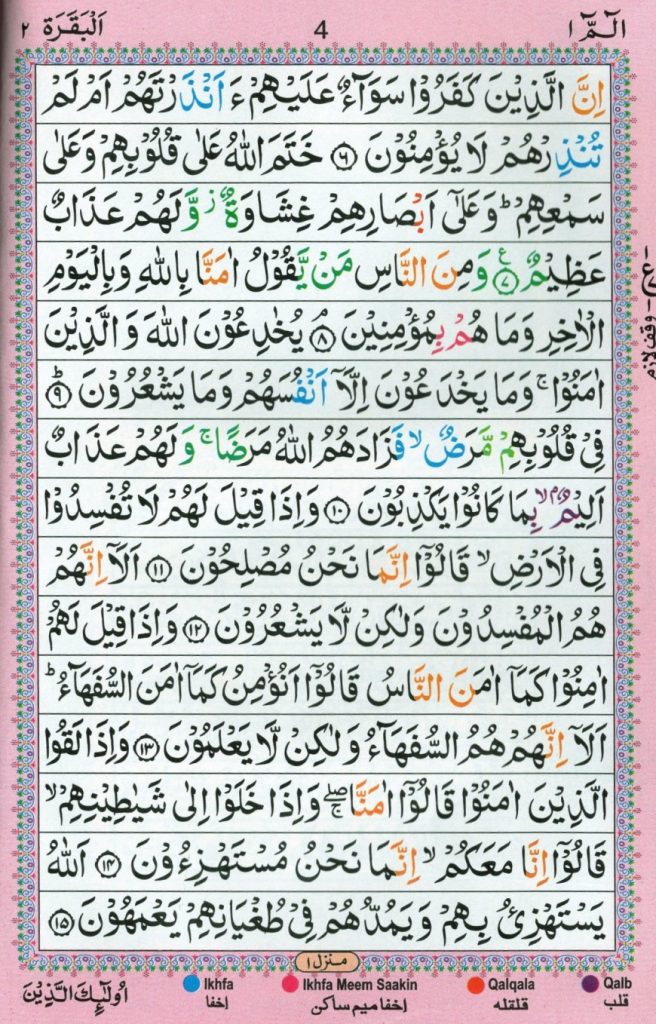 الٓمّٓ ١ 4 اَلْبَقَرَة ٢
اِنَّ الَّذِيْنَ كَفَرُوْا سَوَآءٌ عَلَيْهِمْ ءَاَنْذَرْتَهُمْ اَمْ لَمْ
تُنْذِرْهُمْ لَا يُؤْمِنُوْنَ ۝۶ خَتَمَ اللّٰهُ عَلٰى قُلُوْبِهِمْ وَعَلٰى
سَمْعِهِمْ ؕ وَعَلٰٓى اَبْصَارِهِمْ غِشَاوَةٌ ؗ وَّلَهُمْ عَذَابٌ
عَظِيْمٌ ۝۷ ع وَمِنَ النَّاسِ مَنْ يَّقُوْلُ اٰمَنَّا بِاللّٰهِ وَبِالْيَوْمِ
الْاٰخِرِ وَمَا هُمْ بِمُؤْمِنِيْنَ ۘ ۝۸ يُخٰدِعُوْنَ اللّٰهَ وَالَّذِيْنَ
اٰمَنُوْا ۚ وَمَا يَخْدَعُوْنَ اِلَّاۤ اَنْفُسَهُمْ وَمَا يَشْعُرُوْنَ ؕ ۝۹
فِيْ قُلُوْبِهِمْ مَّرَضٌ ۙ فَزَادَهُمُ اللّٰهُ مَرَضًا ۚ وَلَهُمْ عَذَابٌ
اَلِيْمٌۢ ۙ بِمَا كَانُوْا يَكْذِبُوْنَ ۝۱۰ وَاِذَا قِيْلَ لَهُمْ لَا تُفْسِدُوْا
فِى الْاَرْضِ ۙ قَالُوْۤا اِنَّمَا نَحْنُ مُصْلِحُوْنَ ۝۱۱ اَلَاۤ اِنَّهُمْ
هُمُ الْمُفْسِدُوْنَ وَلٰكِنْ لَّا يَشْعُرُوْنَ ۝۱۲ وَاِذَا قِيْلَ لَهُمْ
اٰمِنُوْا كَمَاۤ اٰمَنَ النَّاسُ قَالُوْۤا اَنُؤْمِنُ كَمَاۤ اٰمَنَ السُّفَهَآءُ ؕ
اَلَاۤ اِنَّهُمْ هُمُ السُّفَهَآءُ وَلٰكِنْ لَّا يَعْلَمُوْنَ ۝۱۳ وَاِذَا لَقُوا
الَّذِيْنَ اٰمَنُوْا قَالُوْۤا اٰمَنَّا ۖۚ وَاِذَا خَلَوْا اِلٰى شَيٰطِيْنِهِمْ ۙ
قَالُوْۤا اِنَّا مَعَكُمْ ۙ اِنَّمَا نَحْنُ مُسْتَهْزِءُوْنَ ۝۱۴ اَللّٰهُ
يَسْتَهْزِئُ بِهِمْ وَيَمُدُّهُمْ فِيْ طُغْيَانِهِمْ يَعْمَهُوْنَ ۝۱۵
ع
وقف لازم
منزل ۱
Ikhfa Ikhfa Meem Saakin Qalqala Qalb
إخفا إخفا ميم ساكن قلقله قلب
اُولٰٓئِكَ الَّذِيْنَ